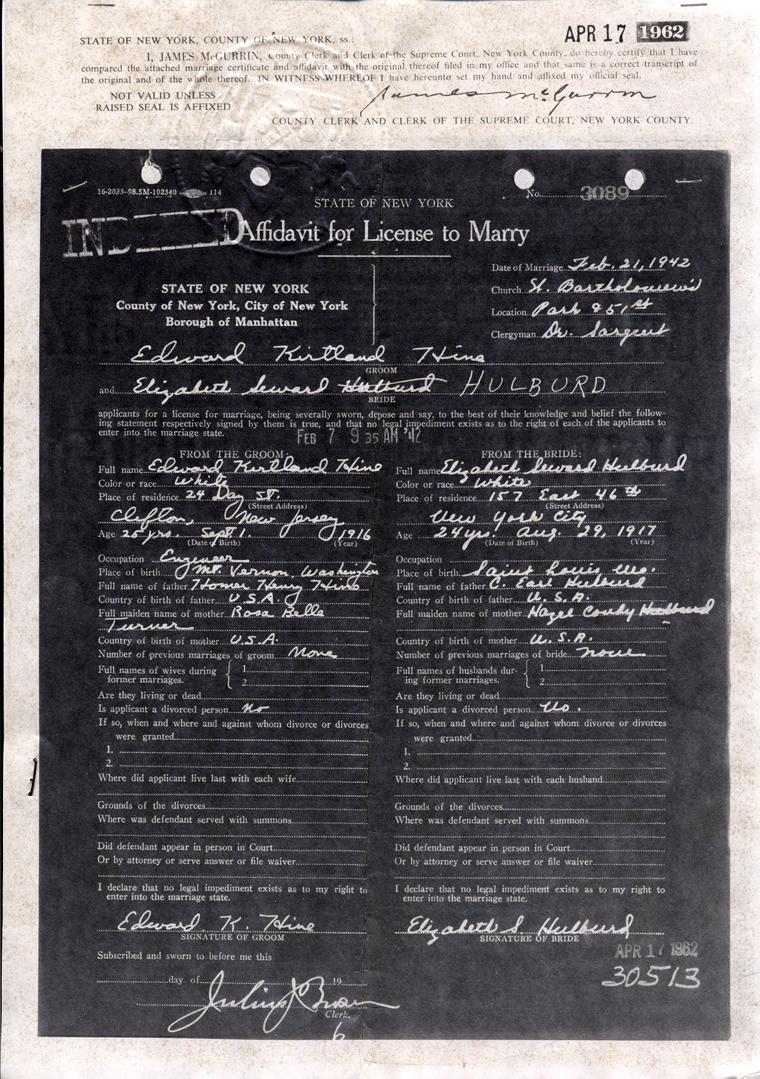 APR 17 1962
STATE OF NEW YORK, COUNTY OF NEW YORK, ss.:
I, JAMES McGURRIN, County Clerk and Clerk of the Supreme Court, New York County, do hereby certify that I have
compared the attached marriage certificate and affidavit with the original thereof filed in my office and that same is a correct transcript of
the original and of the whole thereof. IN WITNESS WHEREOF I have hereunto set my hand and affixed my official seal.
NOT VALID UNLESS
RAISED SEAL IS AFFIXED
James McGurrin
COUNTY CLERK AND CLERK OF THE SUPREME COURT, NEW YORK COUNTY.
16-2023-98.5M-102340 114
No. 3089
STATE OF NEW YORK
Affidavit for License to Marry
STATE OF NEW YORK
County of New York, City of New York
Borough of Manhattan
Date of Marriage Feb. 21, 1942
Church St. Bartholomew's
Location Park & 51st
Clergyman Dr. Sargent
Edward Kirtland Hine
GROOM
and Elizabeth Seward Hulburd HULBURD
BRIDE
applicants for a license for marriage, being severally sworn, depose and say, to the best of their knowledge and belief the follow-
ing statement respectively signed by them is true, and that no legal impediment exists as to the right of each of the applicants to
enter into the marriage state.
FEB 7 9 35 AM '42
FROM THE GROOM:
Full name Edward Kirtland Hine
Color or race White
Place of residence 24 Day St.
(Street Address)
Clifton, New Jersey
Age 25 yrs. Sept. 1. 1916
(Date of Birth) (Year)
Occupation Engineer
Place of birth Mt. Vernon, Washington
Full name of father Homer Henry Hine
Country of birth of father U.S.A.
Full maiden name of mother Rosa Belle
Turner
Country of birth of mother U.S.A.
Number of previous marriages of groom None
Full names of wives during
former marriages.
1
2
Are they living or dead
Is applicant a divorced person No
If so, when and where and against whom divorce or divorces
were granted
1.
2.
Where did applicant live last with each wife
Grounds of the divorces
Where was defendant served with summons
Did defendant appear in person in Court
Or by attorney or serve answer or file waiver
I declare that no legal impediment exists as to my right to
enter into the marriage state.
Edward K. Hine
SIGNATURE OF GROOM
Subscribed and sworn to before me this
day of 19
Clerk.
6
FROM THE BRIDE:
Full name Elizabeth Seward Hulburd
Color or race White
Place of residence 157 East 46th
(Street Address)
New York City
Age 24 yrs. Aug. 29, 1917
(Date of Birth) (Year)
Occupation
Place of birth Saint Louis, Mo.
Full name of father C. Earl Hulburd
Country of birth of father U.S.A.
Full maiden name of mother Hazel Hulburd
Country of birth of mother U.S.A.
Number of previous marriages of bride none
Full names of husbands dur-
ing former marriages.
1
2
Are they living or dead
Is applicant a divorced person No.
If so, when and where and against whom divorce or divorces
were granted
1.
2.
Where did applicant live last with each husband
Grounds of the divorces
Where was defendant served with summons
Did defendant appear in person in Court
Or by attorney or serve answer or file waiver
I declare that no legal impediment exists as to my right to
enter into the marriage state.
Elizabeth S. Hulburd
SIGNATURE OF BRIDE
APR 17 1962
30513